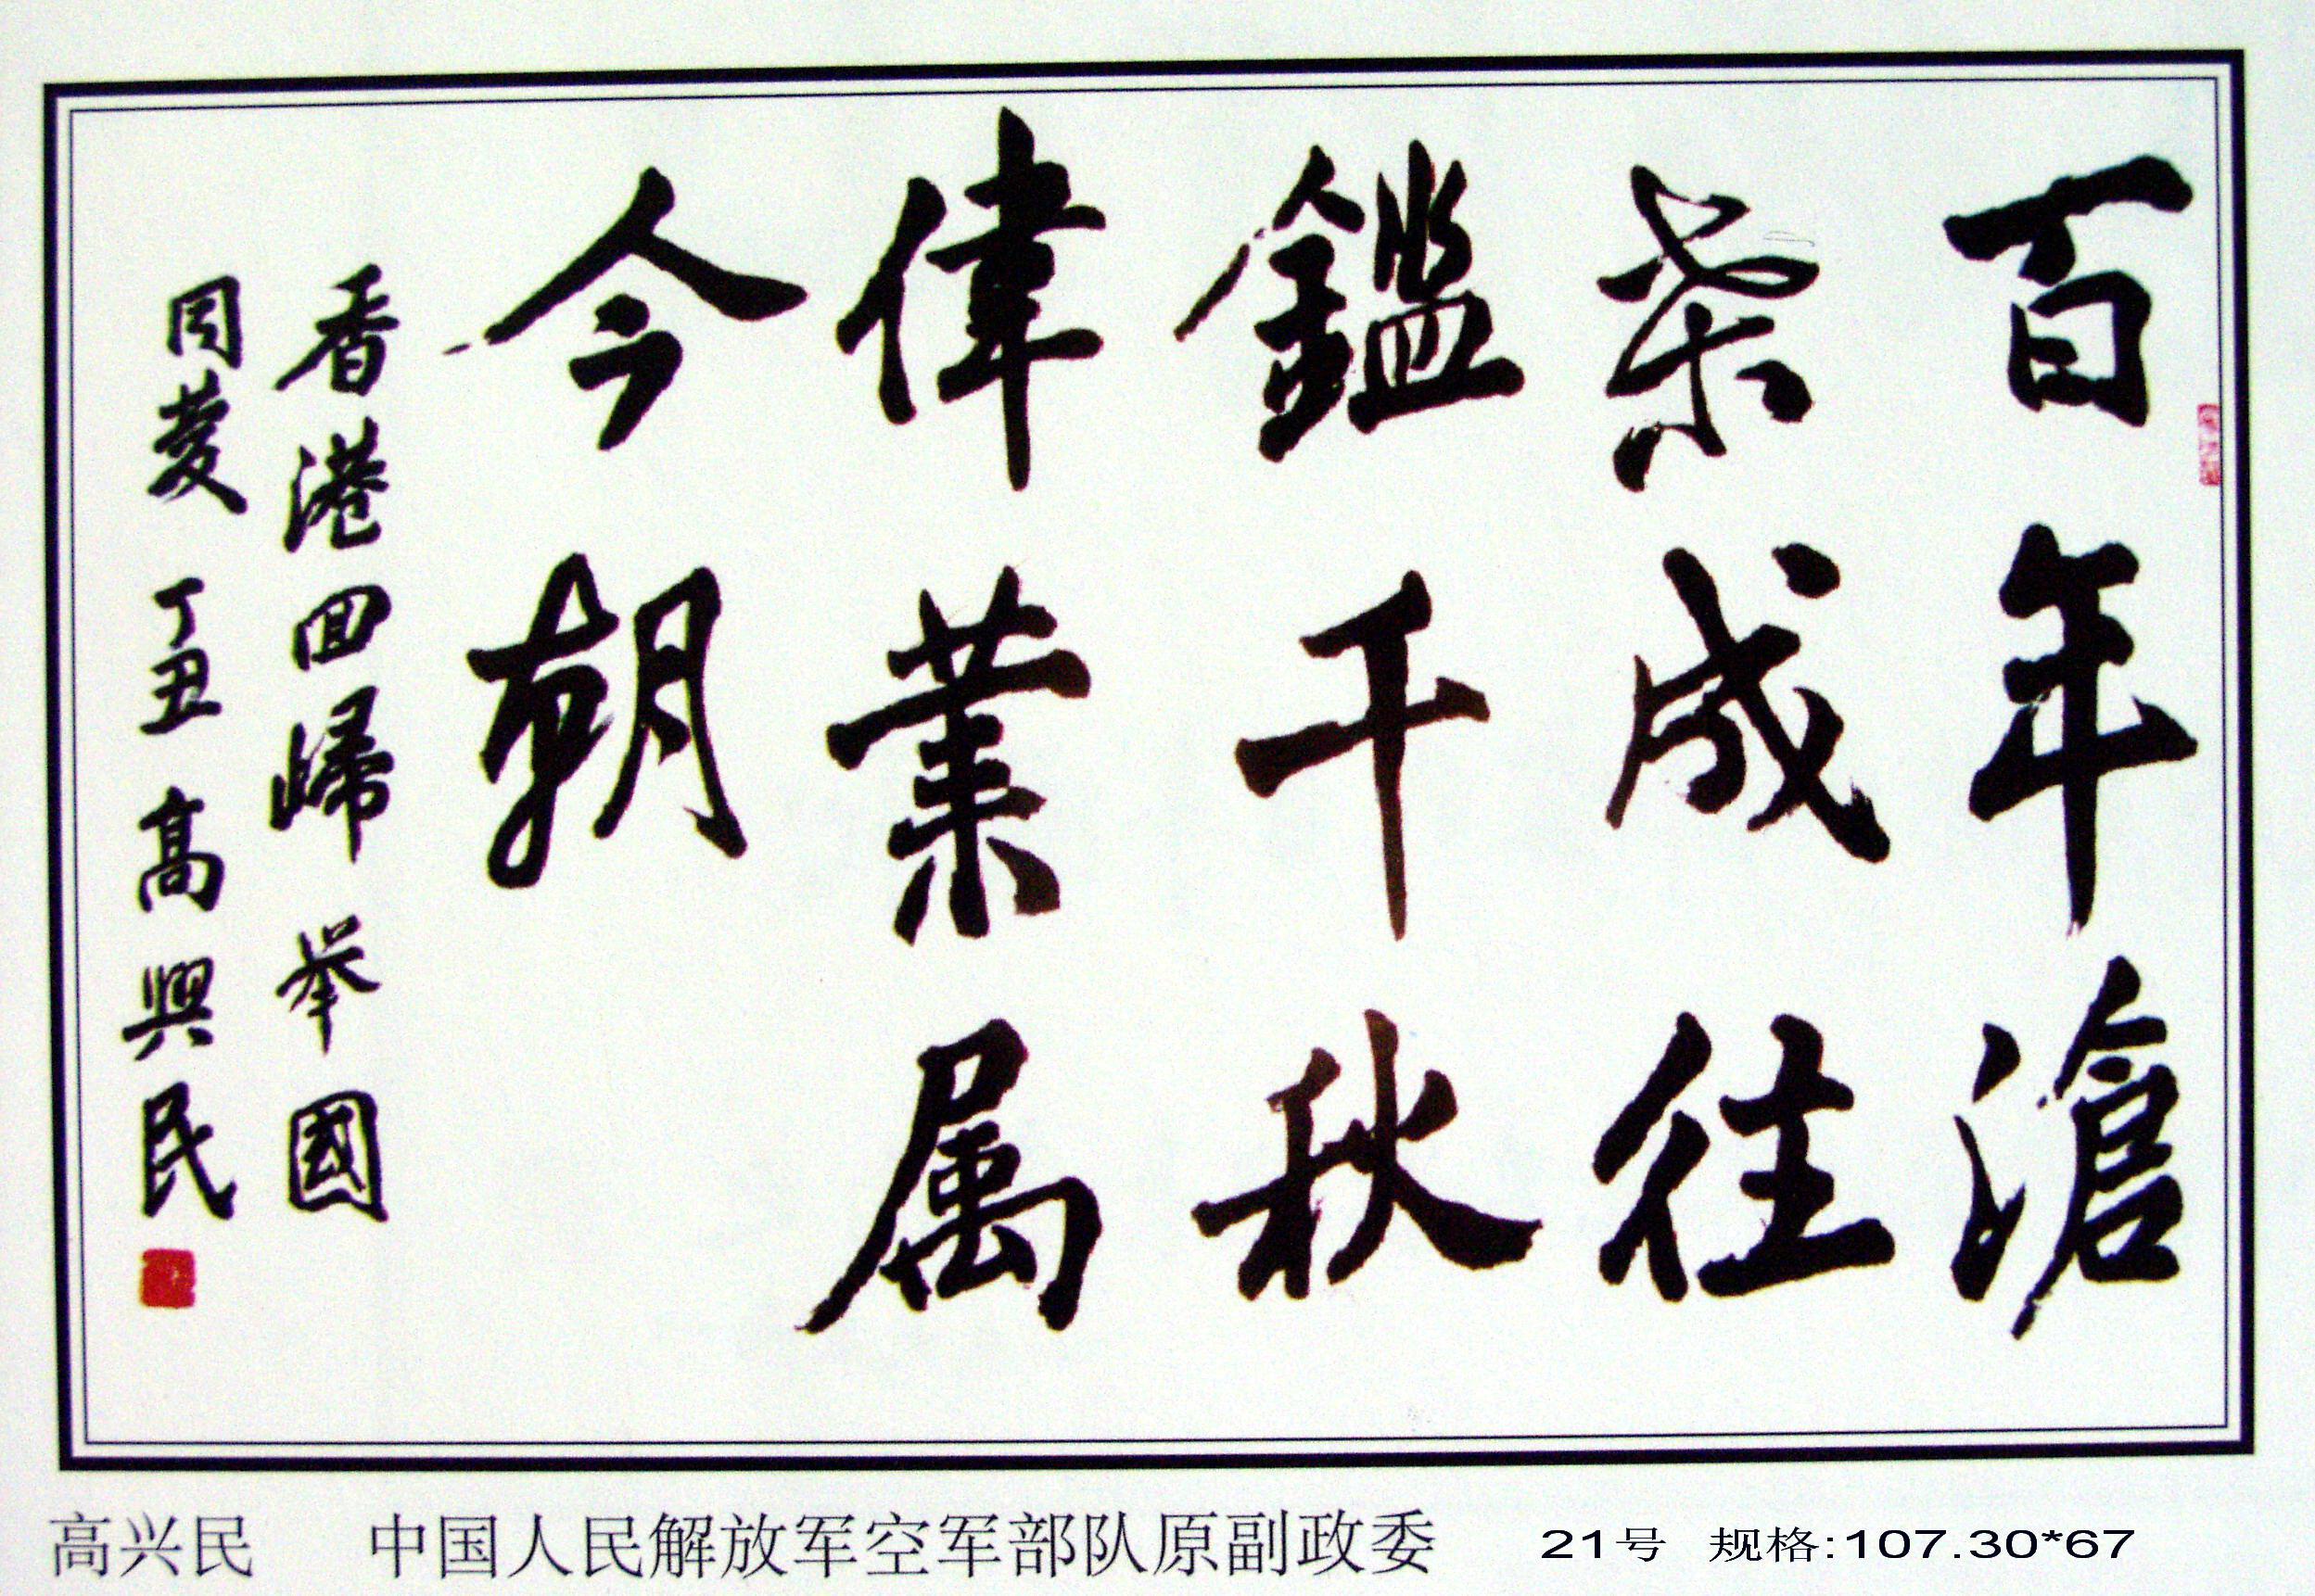 百年滄
桑成往
鑑千秋
偉業属
今朝
香港回歸 举國
同慶 丁丑 高興民
高兴民 中国人民解放军空军部队原副政委 21号 规格:107.30*67